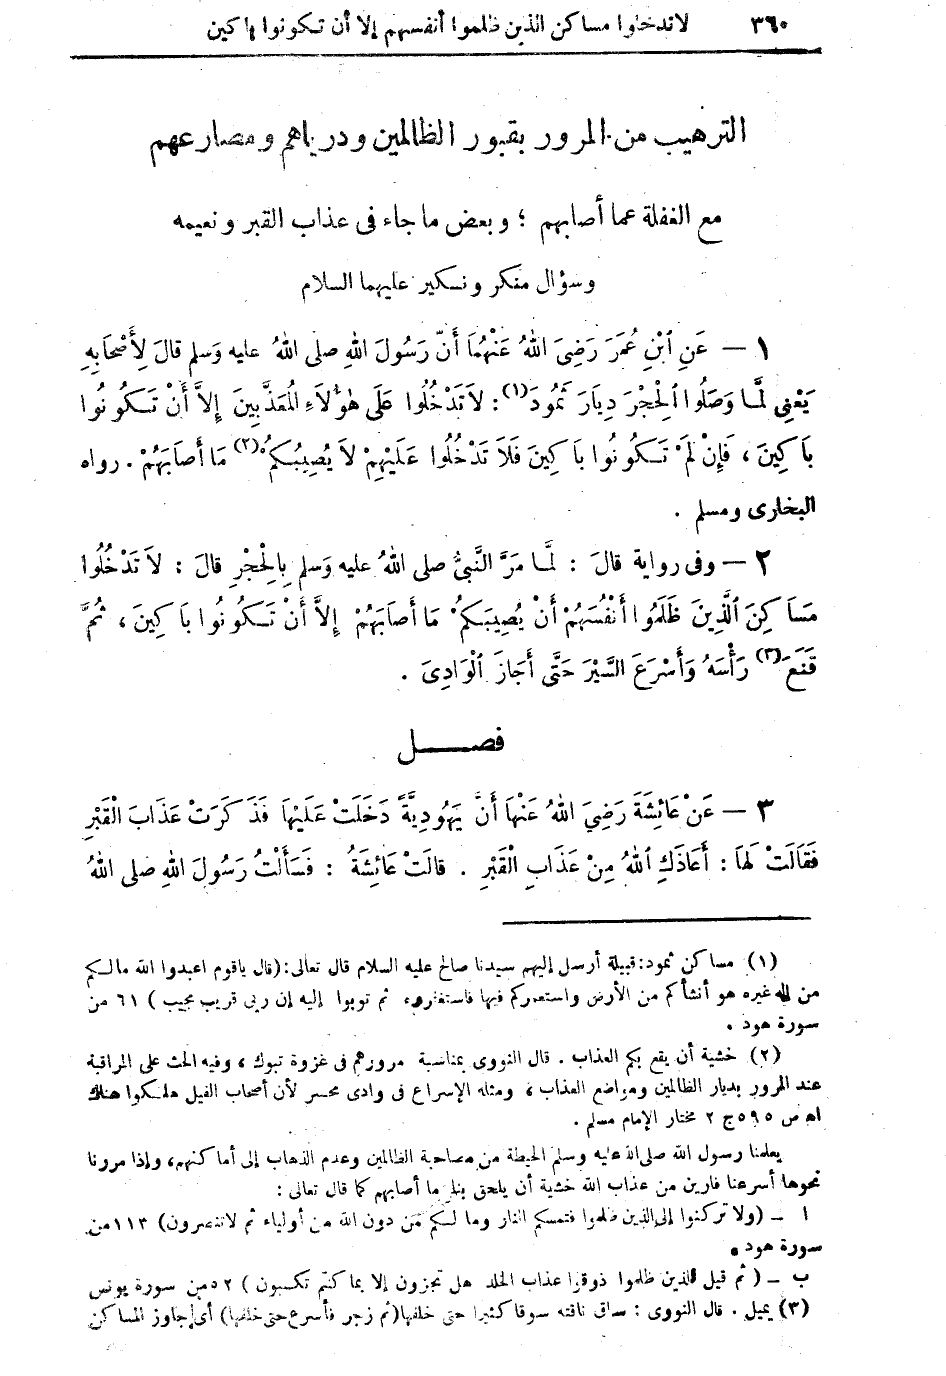 ٣٦٠ لاتدخلوا مساكن الذين ظلموا أنفسهم إلا أن تكونوا باكين
الترهيب من المرور بقبور الظالمين وديارهم ومصارعهم
مع الغفلة عما أصابهم ؛ وبعض ما جاء فى عذاب القبر ونعيمه
وسؤال منكر ونكير عليهما السلام
١ — عَنِ ٱبْنِ عُمَرَ رَضِىَ اللهُ عَنْهُمَا أَنَّ رَسُولَ اللهِ صلى اللهُ عليه وَسلم قالَ لِأَصْحَابِهِ
يَعْنِى لَمَّا وَصَلُوا الْحِجْرَ دِيَارَ ثَمُودَ(١) : لاَتَدْخُلُوا عَلَى هٰؤُلاَءِ الْمُعَذَّبِينَ إِلاَّ أَنْ تَكُونُوا
بَاكِينَ ، فَإِنْ لَمْ تَكُونُوا بَاكِينَ فَلاَ تَدْخُلُوا عَلَيْهِمْ لاَ يُصِيبُكُمْ(٢) مَا أَصَابَهُمْ . رواه
البخارى ومسلم .
٢ — وفى رواية قالَ : لَمَّا مَرَّ النَّبِىُّ صلى اللهُ عليه وَسلم بِالْحِجْرِ قالَ : لاَ تَدْخُلُوا
مَسَاكِنَ الَّذِينَ ظَلَمُوا أَنْفُسَهُمْ أَنْ يُصِيبَكُمْ مَا أَصَابَهُمْ إِلاَّ أَنْ تَكُونُوا بَاكِينَ ، ثُمَّ
قَنَعَ(٣) رَأْسَهُ وَأَسْرَعَ السَّيْرَ حَتَّى أَجَازَ الْوَادِىَ .
فصـــل
٣ — عَنْ عَائِشَةَ رَضِىَ اللهُ عَنْهَا أَنَّ يَهُودِيَّةً دَخَلَتْ عَلَيْهَا فَذَكَرَتْ عَذَابَ الْقَبْرِ
فَقَالَتْ لَهَا : أَعَاذَكِ اللهُ مِنْ عَذَابِ الْقَبْرِ . قالَتْ عَائِشَةُ : فَسَأَلْتُ رَسُولَ اللهِ صلى اللهُ
(١) مساكن ثمود: قبيلة أرسل إليهم سيدنا صالح عليه السلام قال تعالى: (قال ياقوم اعبدوا الله مالكم
من إله غيره هو أنشأكم من الأرض واستعمركم فيها فاستغفروه ثم توبوا إليه إن ربى قريب مجيب ) ٦١ من
سورة هود .
(٢) خشية أن يقع بكم العذاب . قال النووى بمناسبة مرورهم فى غزوة تبوك ، وفيه الحث على المراقبة
عند المرور بديار الظالمين ومواضع العذاب ، ومثله الإسراع فى وادى محسر لأن أصحاب الفيل هلكوا هناك
اه ص ٥٩٥ ج ٢ مختار الإمام مسلم .
يعلمنا رسول الله صلى الله عليه وسلم الحيطة من مصاحبة الظالمين وعدم الذهاب إلى أماكنهم، وإذا مررنا
نحوها أسرعنا فارين من عذاب الله خشية أن يلحق بنا ما أصابهم كما قال تعالى :
ا — (ولا تركنوا إلى الذين ظلموا فتمسكم النار وما لكم من دون الله من أولياء ثم لاتنصرون) ١١٣ من
سورة هود .
ب — ( ثم قيل للذين ظلموا ذوقوا عذاب الخلد هل تجزون إلا بما كنتم تكسبون ) ٥٢ من سورة يونس
(٣) يميل . قال النووى : ساق ناقته سوقا كثيرا حتى خلفها (ثم زجر فأسرع حتى خلفها) أى جاوز المساكن